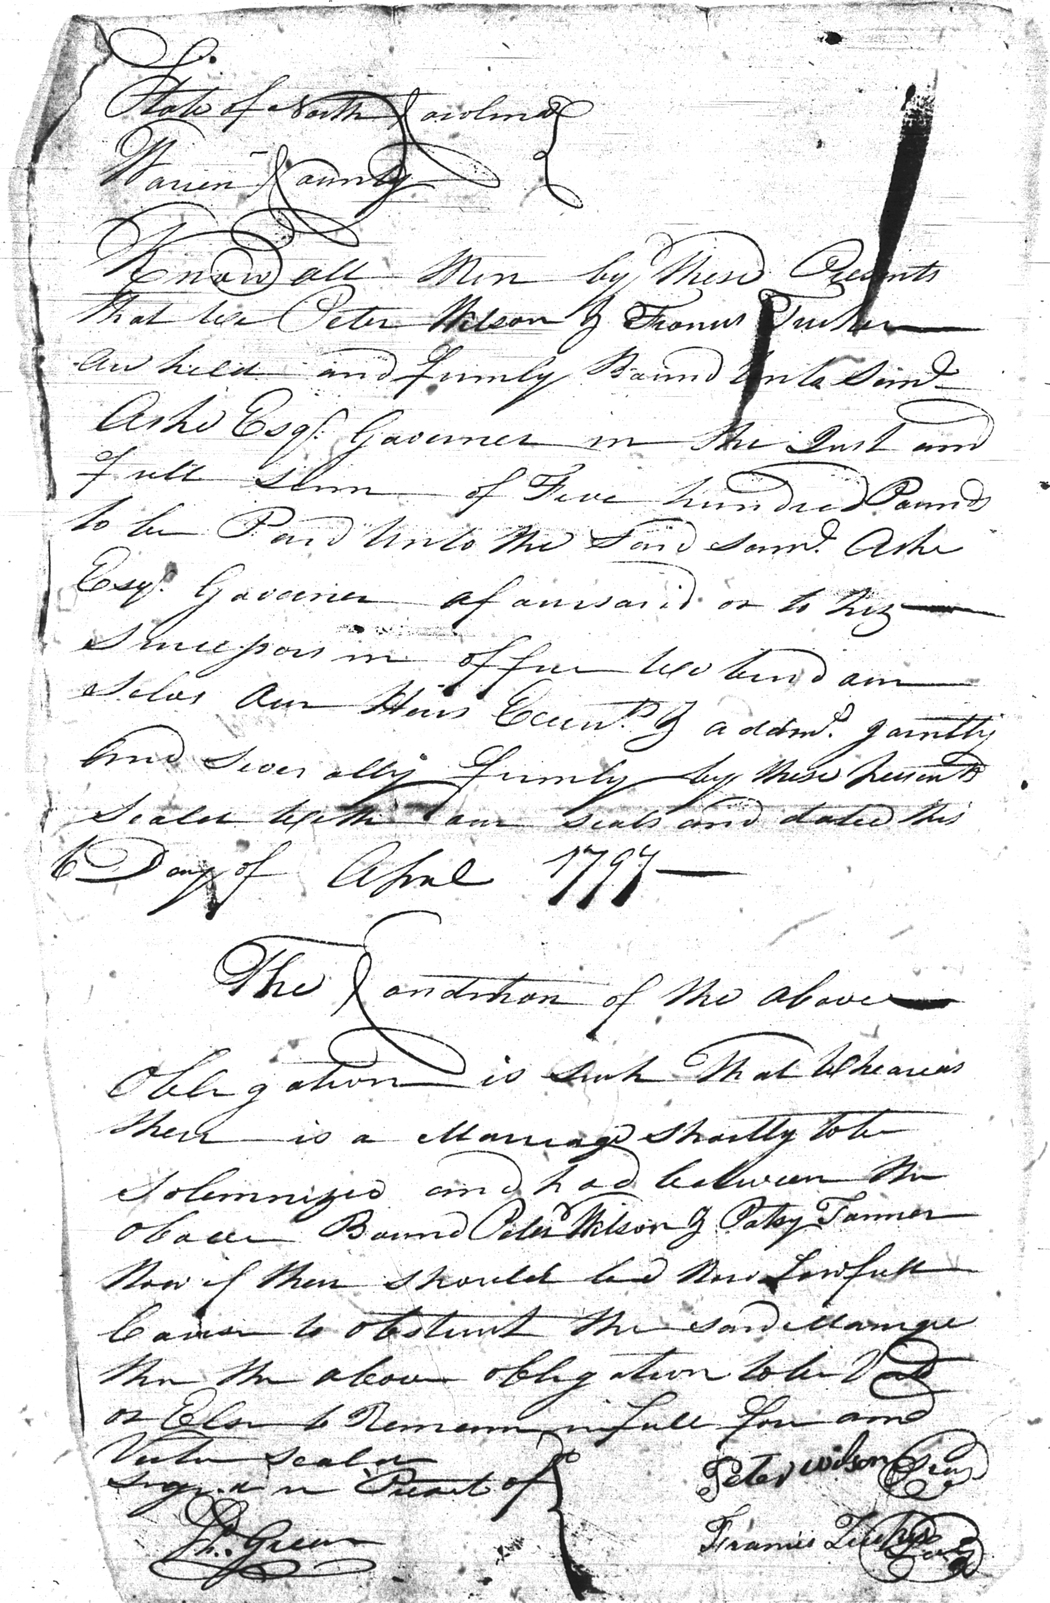 State of North Carolina
Warren County
Know all Men by These Presents
That we Peter Wilson & Francis Tucker
are held and firmly Bound Unto Saml.
Ashe Esqr. Governer in the Just and
full Sum of Five hundred Pounds
to be Paid Unto the Said Saml. Ashe
Esqr. Governer afauresaid or to his
Successors in office we bind our
Selves Our Heirs Execurs. & addmr. Jointly
And Severally firmly by these presents
Sealed With our seals and dated this
6 Day of April 1797
The Condition of the above
Obligation is such That Whereas
their is a Marriage Shortly to be
Solemnized and had between the
above Bound Peter Wilson & Patsy Tanner
Now if their should be no Lawfull
Cause to obstruct the said Marriage
then the above obligation to be Void
or Else to Remain in full force and
Vertu Seald
Signd in Presents of
Peter Wilson Seal
Francis Tucker Seal
Green